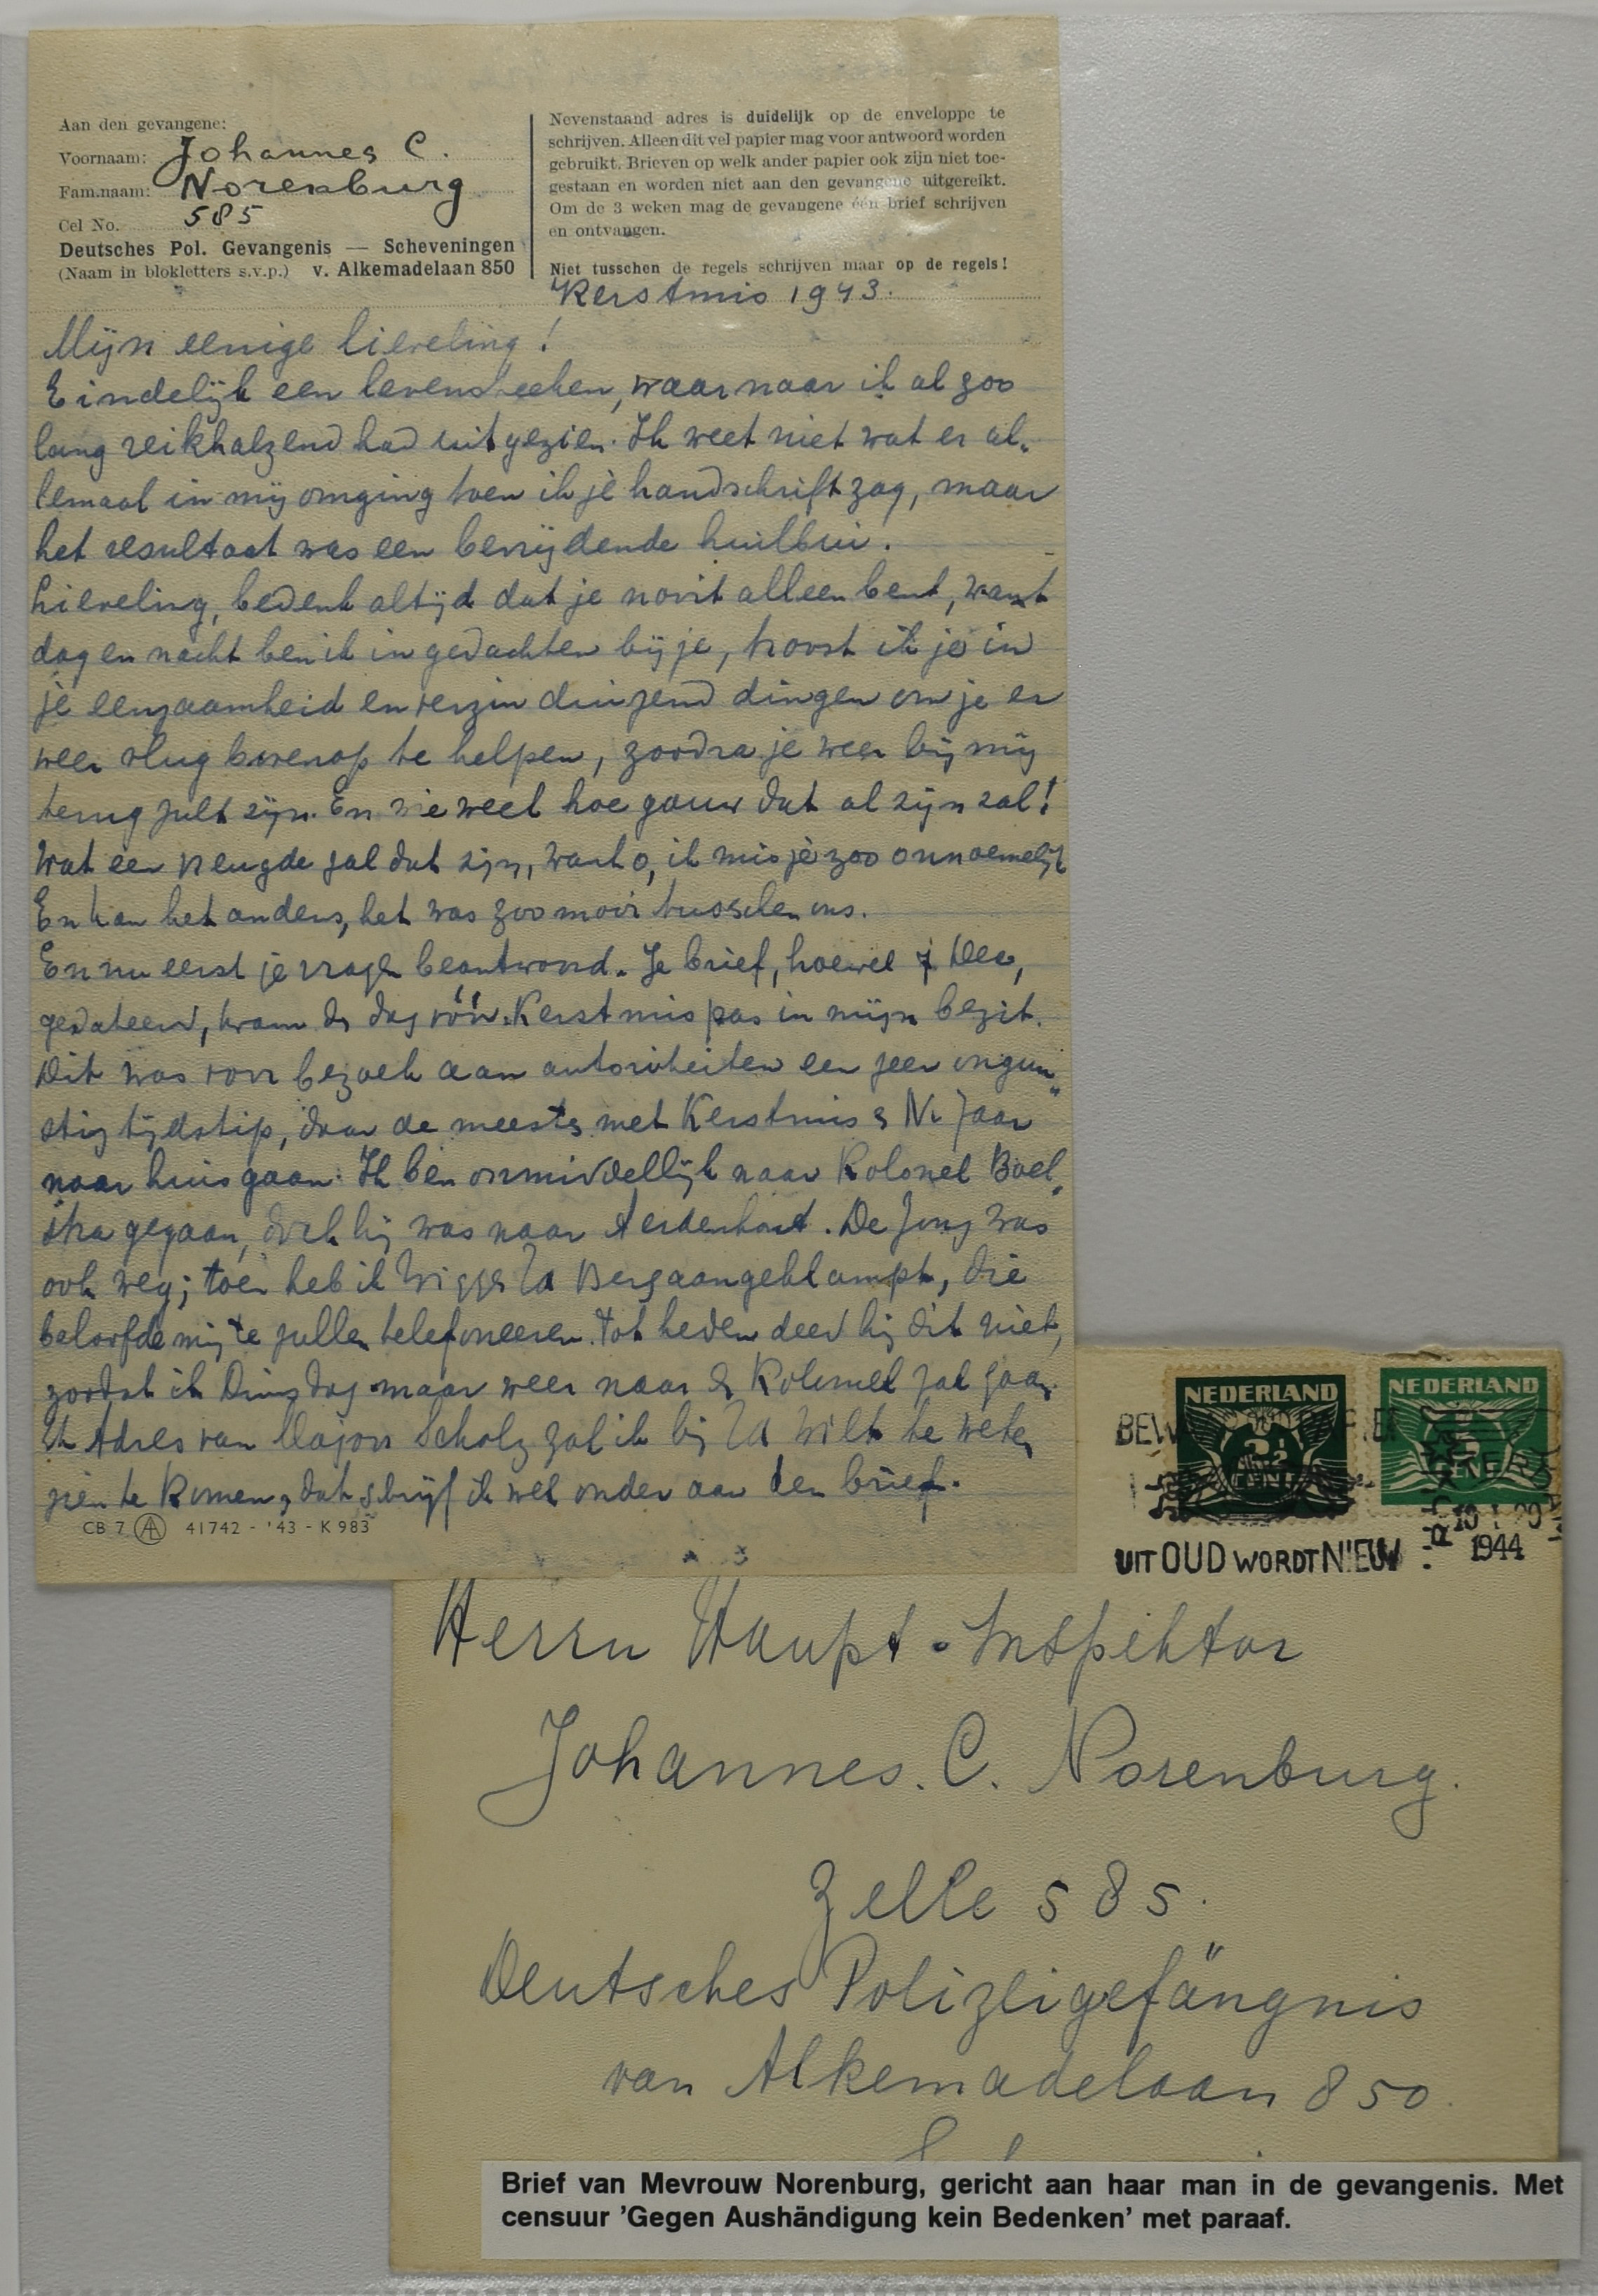 Aan den gevangene:
Voornaam: Johannes C.
Fam.naam: Norenburg
Cel No. 585
Deutsches Pol. Gevangenis — Scheveningen
(Naam in blokletters s.v.p.) v. Alkemadelaan 850
Nevenstaand adres is duidelijk op de enveloppe te
schrijven. Alleen dit vel papier mag voor antwoord worden
gebruikt. Brieven op welk ander papier ook zijn niet toe-
gestaan en worden niet aan den gevangene uitgereikt.
Om de 3 weken mag de gevangene één brief schrijven
en ontvangen.
Niet tusschen de regels schrijven maar op de regels!
Kerstmis 1943.
Mijn eenige lieveling!
Eindelijk een levensteeken, waarnaar ik al zoo
lang reikhalzend had uitgezien. Ik weet niet wat er al-
lemaal in mij omging toen ik je handschrift zag, maar
het resultaat was een bevrijdende huilbui.
Lieveling, bedenk altijd dat je nooit alleen bent, want
dag en nacht ben ik in gedachten bij je, troost ik je in
je eenzaamheid en verzin duizend dingen om je er
weer vlug bovenop te helpen, zoodra je weer bij mij
terug zult zijn. En wie weet hoe gauw dat al zijn zal!
Wat een vreugde zal dat zijn, want o, ik mis je zoo onnoemelijk
En kan het anders, het was zoo mooi tusschen ons.
En nu eerst je vragen beantwoord. Je brief, hoewel 7 Dec,
gedateerd, kwam de dag vóór Kerstmis pas in mijn bezit.
Dit was voor bezoek aan autoriteiten een zeer ongun-
stig tijdstip, daar de meeste met Kerstmis & N. Jaar
naar huis gaan. Ik ben onmiddellijk naar Kolonel Boel-
stra gegaan, doch hij was naar Aerdenhout. De Jong was
ook weg; toen heb ik Berg aangeklampt, die
beloofde mij te zullen telefoneeren. Tot heden deed hij dit niet,
zoodat ik Dinsdag maar weer naar de Kolonel zal gaan.
Adres van Majoor Scholz zal ik bij te weten
zien te komen, dat schrijf ik wel onder aan den brief.
CB 7 41742 - '43 - K 983
NEDERLAND
NEDERLAND
UIT OUD WORDT NIEUW
1944
Herrn Haupt-Inspektor
Johannes. C. Norenburg.
Zelle 585.
Deutsches Polizeigefängnis
van Alkemadelaan 850.
Brief van Mevrouw Norenburg, gericht aan haar man in de gevangenis. Met
censuur 'Gegen Aushändigung kein Bedenken' met paraaf.